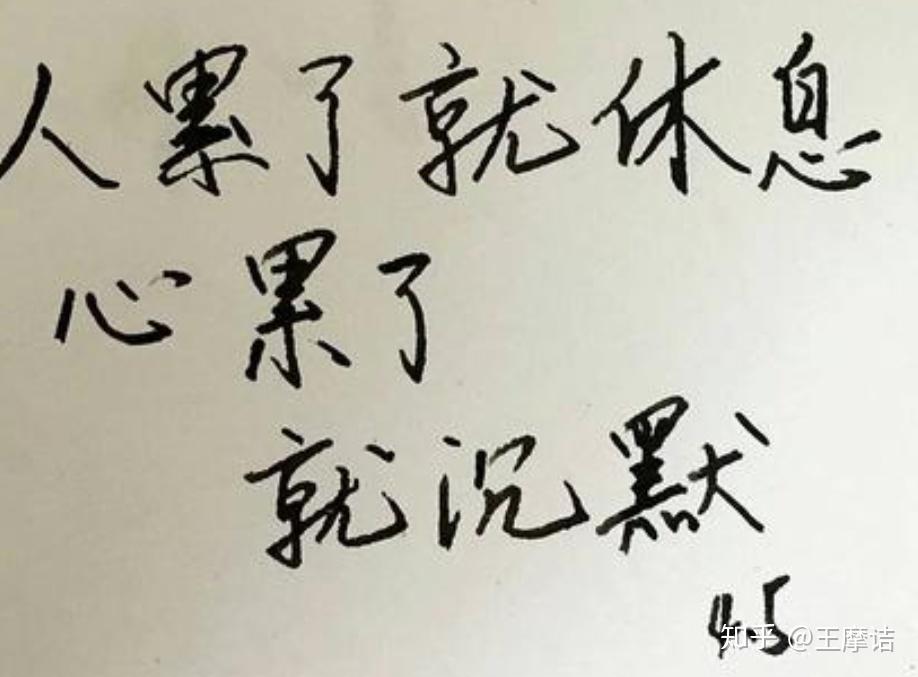 人累了就休息
心累了
就沉默
45
知乎 @王摩诘